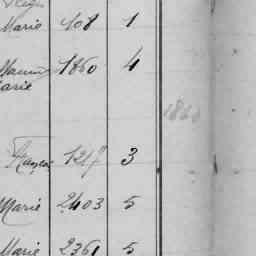 Marie 408 1
1860 4
Marie
1860
1217 3
Marie 2403 5
Marie 2361 5